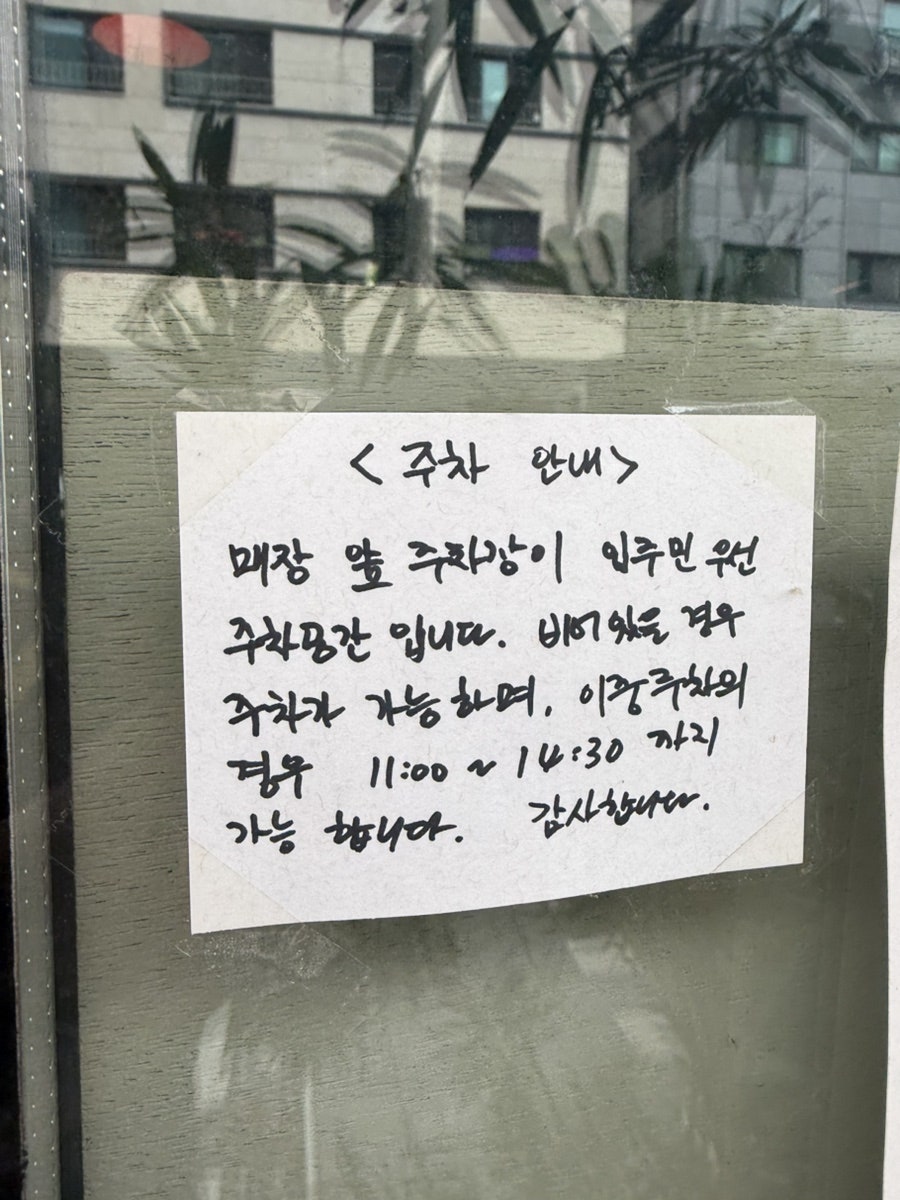 < 주차 안내 >
매장 앞 주차장이 입주민 우선
주차공간 입니다. 비어있을 경우
주차가 가능하며, 이중주차의
경우 11:00 ~ 14:30 까지
가능 합니다. 감사합니다.